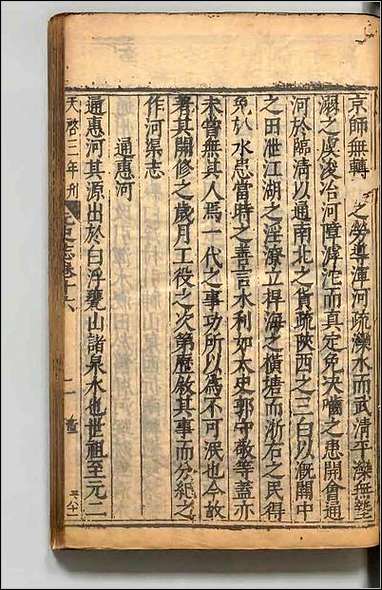 京師無轉 之勞導渾河疏灤水而武清平灤無墊
溺之虞浚冶河障滹沱而真定免決嚙之患開會通
河於臨清以通南北之貨疏陝西之三白以溉關中
之田泄江湖之淫潦立捍海之橫塘而浙右之民得
免扵水患當時之善言水利如太史郭守敬等蓋亦
未嘗無其人焉一代之事功所以爲不可泯也今故
著其開修之歲月工役之次第歷敘其事而分紀之
作河渠志
通惠河
通惠河其源出於白浮甕山諸泉水也世祖至元二
天啓三年刊 元史志卷十六